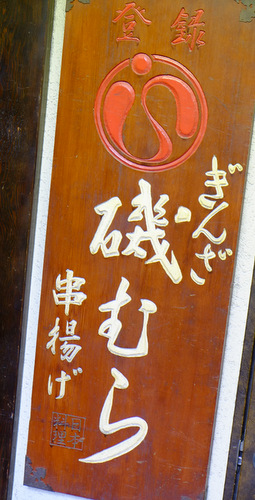 登録
ぎんざ
磯むら
串揚げ